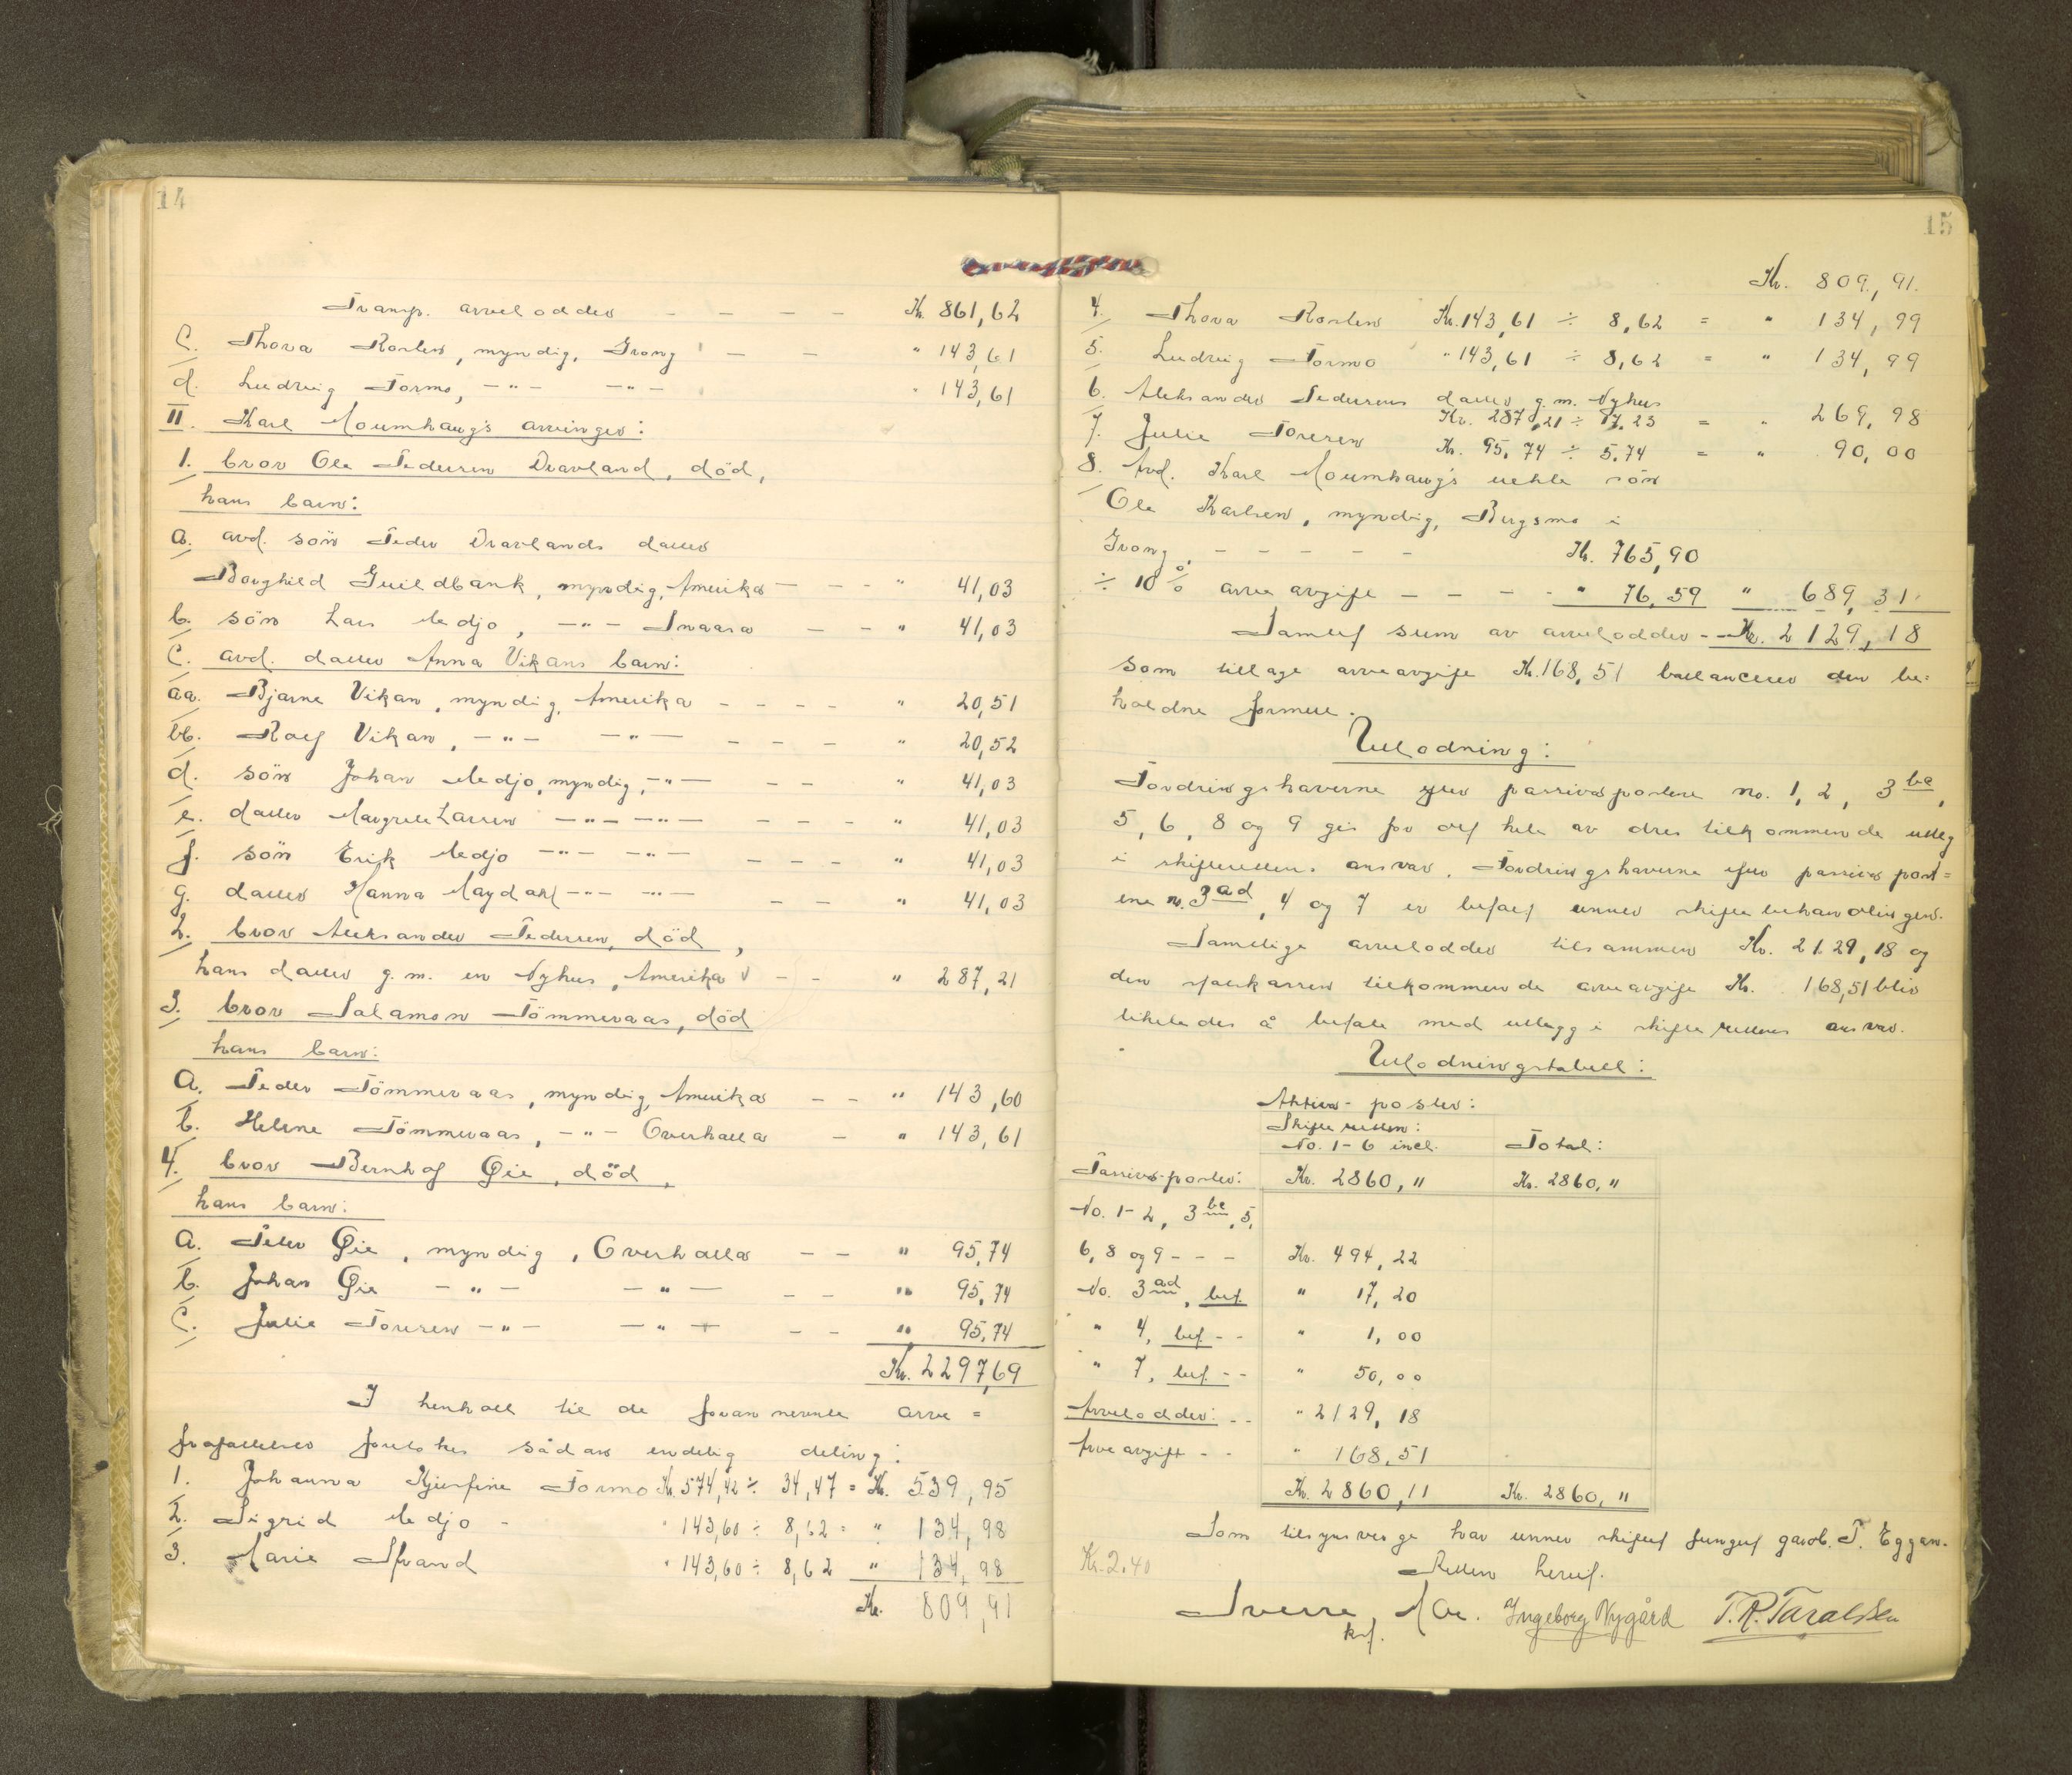 14
Transp. arvelodder - - - - Kr. 861,62
c. Thora Rosten, myndig, Grong - - " 143,61
d. Ludvig Tormo, -"- -"- " 143,61
II. Karl Moumhaug's arvinger:
1. bror Ole Pedersen Dravland, död,
hans barn:
a. avd. sön Peder Dravlands datter
Borghild Guildbank, myndig, Amerika - - - " 41,03
b. sön Lars Medjo, -"- Snaasa - - " 41,03
c. avd. datter Anna Vikans barn:
aa. Bjarne Vikan, myndig, Amerika - - - - " 20,51
bb. Rolf Vikan, -"- -"- - - - " 20,52
d. sön Johan Medjo, myndig, -"- - - " 41,03
e. datter Margrete Larsen -"- -"- - - - " 41,03
f. sön Erik Medjo -"- -"- - - - " 41,03
g. datter Hanna Maydahl -"- -"- - - " 41,03
2. bror Aleksander Pedersen, död,
hans datter g.m. en Nyhus, Amerika - - " 287,21
3. bror Salamon Tömmeraas, död
hans barn:
a. Peder Tömmeraas, myndig, Amerika - - " 143,60
b. Helene Tömmeraas, -"- Overhalla - " 143,61
4. bror Bernhof Øie, död,
hans barn:
a. Peter Øie, myndig, Overhalla - - " 95,74
b. Johan Øie -"- -"- - - " 95,74
c. Julie Toresen -"- -"- - - " 95,74
Kr. 2297,69
I henhold til de foran nevnte arve=
frafallelser foretokes sådan endelig deling:
1. Johanna Kjerstine Tormo Kr. 574,42 ÷ 34,47 = Kr. 539,95
2. Sigrid Medjo - " 143,60 ÷ 8,62 = " 134,98
3. Marie Strand " 143,60 ÷ 8,62 " 134,98
Kr. 809,91
15
Kr. 809,91.
4. Thora Rosten Kr. 143,61 ÷ 8,62 = " 134,99
5. Ludvig Tormo " 143,61 ÷ 8,62 = " 134,99
6. Aleksander Pedersens datter g.m. Nyhus
Kr. 287,21 ÷ 17,23 = " 269,98
7. Julie Toresen Kr. 95,74 ÷ 5,74 = " 90,00
8. Avd. Karl Moumhaug's uekte sön
Ole Karlsen, myndig, Bergsmo i
Grong, - - - - - Kr. 765,90
÷ 10 % arveavgift - - - - " 76,59 " 689,31
Samlet sum av arvelodder - - Kr. 2129,18
som tillagt arveavgift Kr. 168,51 ballancerer den be=
holdne formue.
Utlodning:
Fordringshaverne efter passivapostene no. 1, 2, 3 bc,
5, 6, 8 og 9 gis for det hele av dres tilkommende utleg
i skifterettens ansvar. Fordringshaverne efter passiva post=
ene no. 3 ad, 4 og 7 er betalt under skiftebehandlingen.
Samtlige arvelodder tilsammen Kr. 2129,18 og
den statskassen tilkommende arveavgift Kr. 168,51 blir
likeledes å betale med utlegg i skifterettens ansvar.
Utlodningstabell:
Aktiva-poster:
Skifteretten:
No. 1-6 incl. Total:
Passiva-poster: Kr. 2860," Kr. 2860,"
No. 1-2, 3 bc, 5,
6, 8 og 9 - - - Kr. 494,22
No. 3 ad, bet. " 17,20
" 4, bet. - - " 1,00
" 7, bet. - - " 50,00
Arvelodder: - - " 2129,18
Arveavgift - - " 168,51
Kr. 2860,11 Kr. 2860,"
Som tilsynsverge har under skiftet fungert gardb. P. Eggan.
Kr. 2.40
Retten hevet.
Sverre Moe. Ingeborg Nygård T. R. Taraldsen
kst.